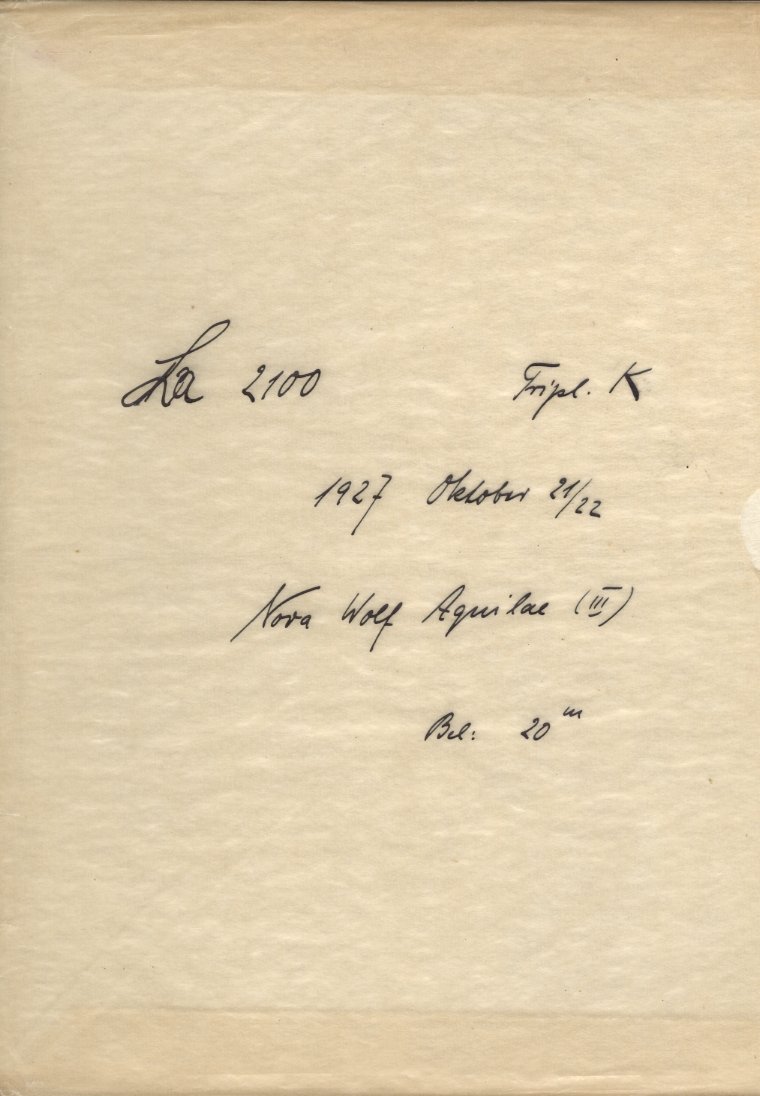 La 2100 Tripl. K
1927 Oktober 21/22
Nova Wolf Aquilae (III)
Bel: 20 m